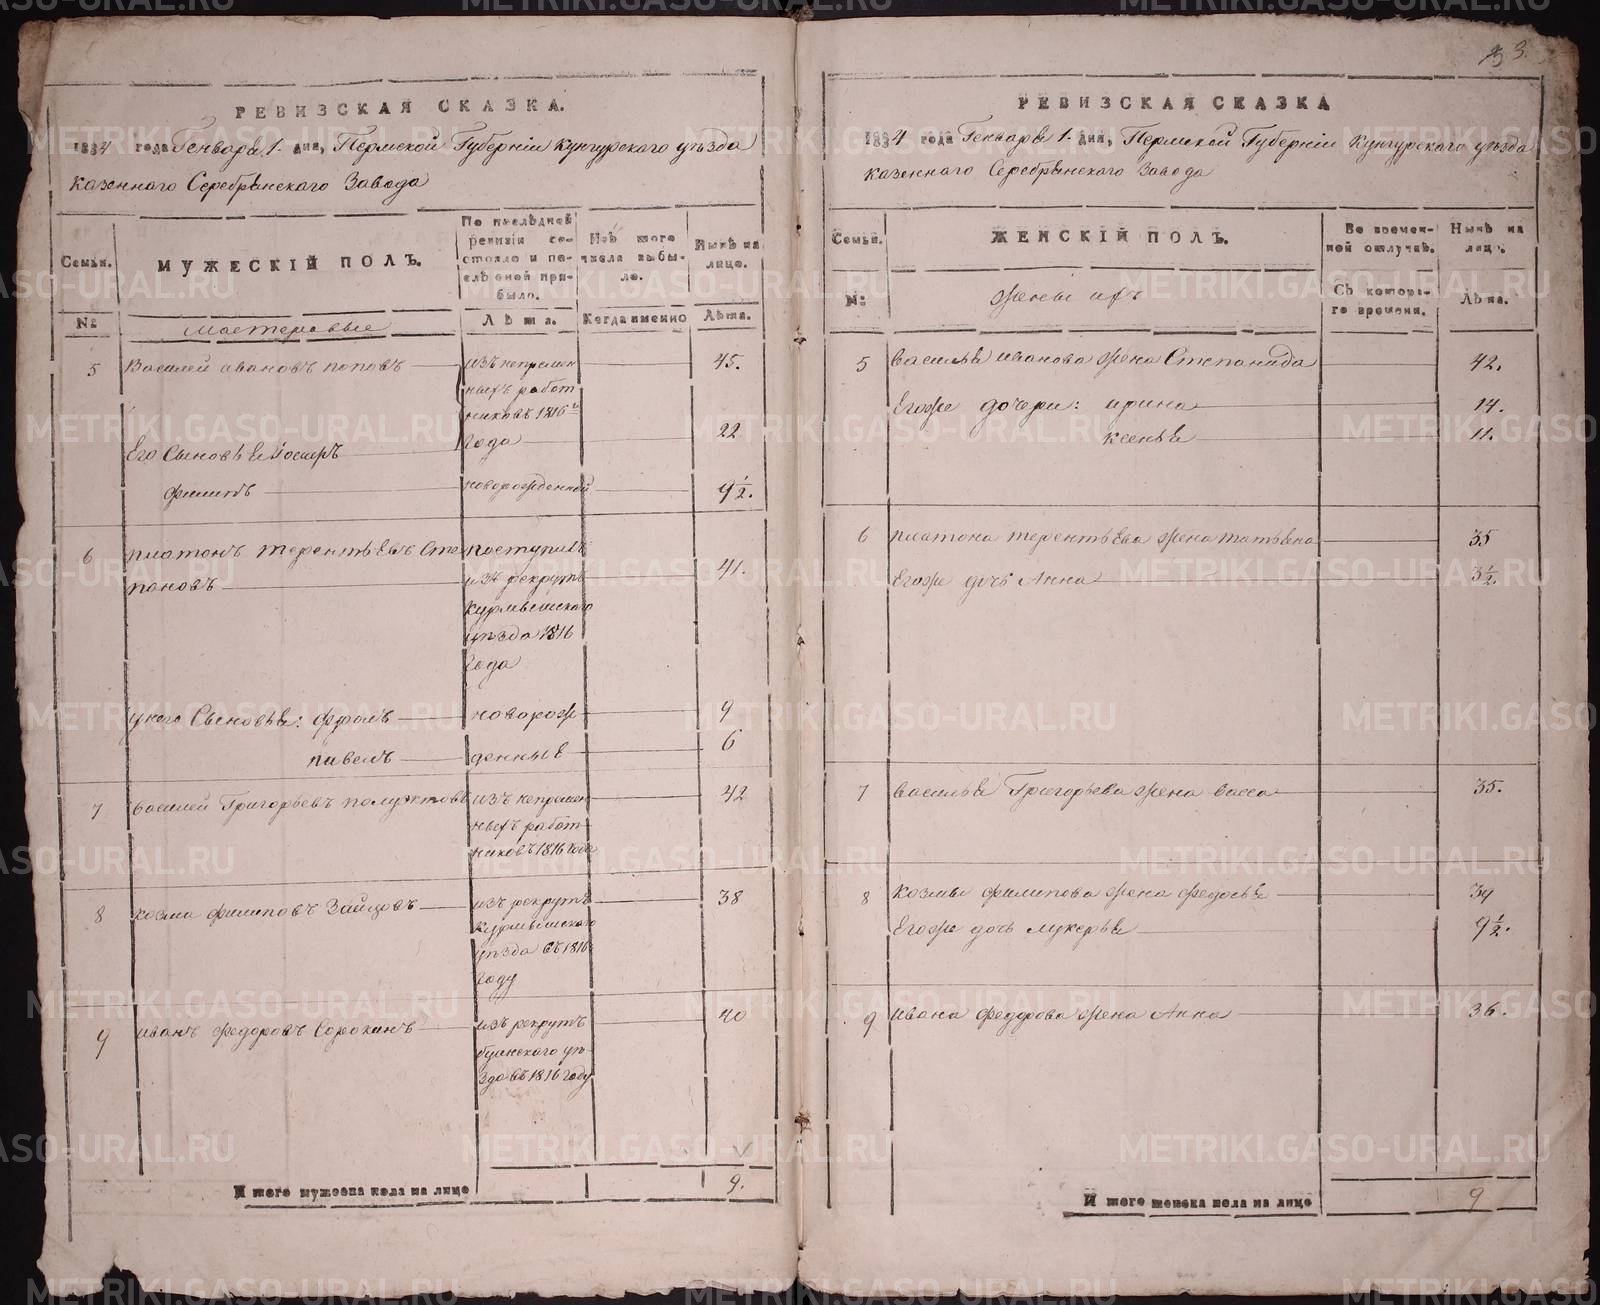 3.
РЕВИЗСКАЯ СКАЗКА.
1834 года Генваря 1. дня, Пермской Губерніи кунгурского уѣзда
казеннаго Серебрянскаго Завода
Семьи.
МУЖЕСКІЙ ПОЛЪ.
По послѣдней ревизіи состояло и послѣ оной прибыло.
Изъ того числа выбыло.
Нынѣ на лицо.
№
мастеровые
Лѣта.
Когда именно
Лѣта.
5 Василей ивановъ поповъ 45.
изъ непременныхъ работниковъ 1816 года
Его Сыновья 22
филипъ новорожденной 9½.
6 платонъ терентьевъ Степановъ 41.
поступилъ изъ рекрутъ уѣзда 1816 года
у него Сыновья: фролъ 9
павелъ 6
новорожденные
7 василей Григорьевъ 42
изъ непременныхъ работниковъ 1816 года
8 козма филиповъ Зайцовъ 38
изъ рекрутъ уѣзда въ 1816 году
9 иванъ федоровъ Сорокинъ 40
изъ рекрутъ уѣзда въ 1816 году
И того мужеска пола на лицо 9.
РЕВИЗСКАЯ СКАЗКА
1834 года Генваря 1. дня, Пермской Губерніи кунгурскаго уѣзда
казеннаго Серебрянскаго Завода
Семьи.
ЖЕНСКІЙ ПОЛЪ.
Во временной отлучкѣ.
Нынѣ на лицо.
№:
жены ихъ
Съ котораго времени.
Лѣта.
5 василья иванова жена Степанида 42.
Егоже дочери: ирина 14.
ксенья 11.
6 платона терентьева жена татьяна 35
Егоже дочь Анна 3½.
7 василья Григорьева жена васса 35.
8 козмы филипова жена федосья 34
Егоже дочь лукерья 9½.
9 ивана федорова жена Анна 36.
И того женска пола на лицо 9
METRIKI.GASO-URAL.RU